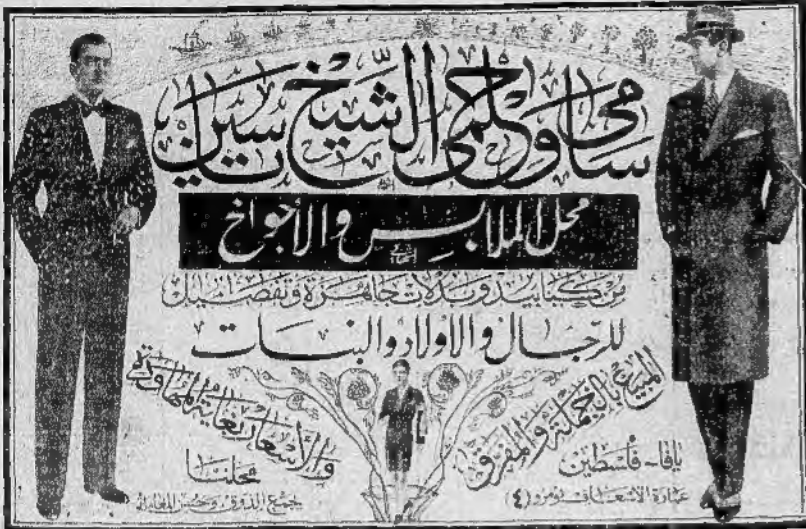 سامي وحلمي الشيخ ياسين
محل الملابس والأجواخ
من كبابيد وبدلات جاهزة وتفصيل
للرجال والاولاد والبنات
المبيع بالجملة والمفرق
والأسعار بغاية المهاودة
يافا - فلسطين
محلنا
عمارة الأسعاف نومرو (٤)
جمع الذوق وحسن المعاملة